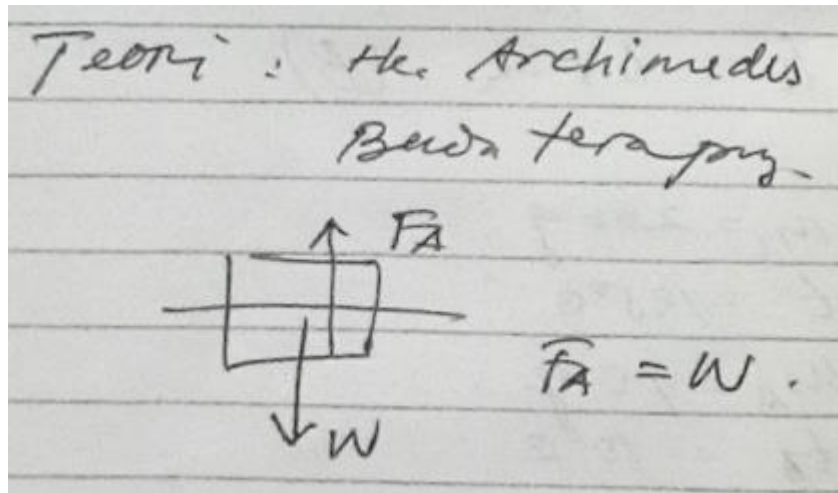 Teori : Hk. Archimedes
Benda terapung.
FA
FA = W.
W